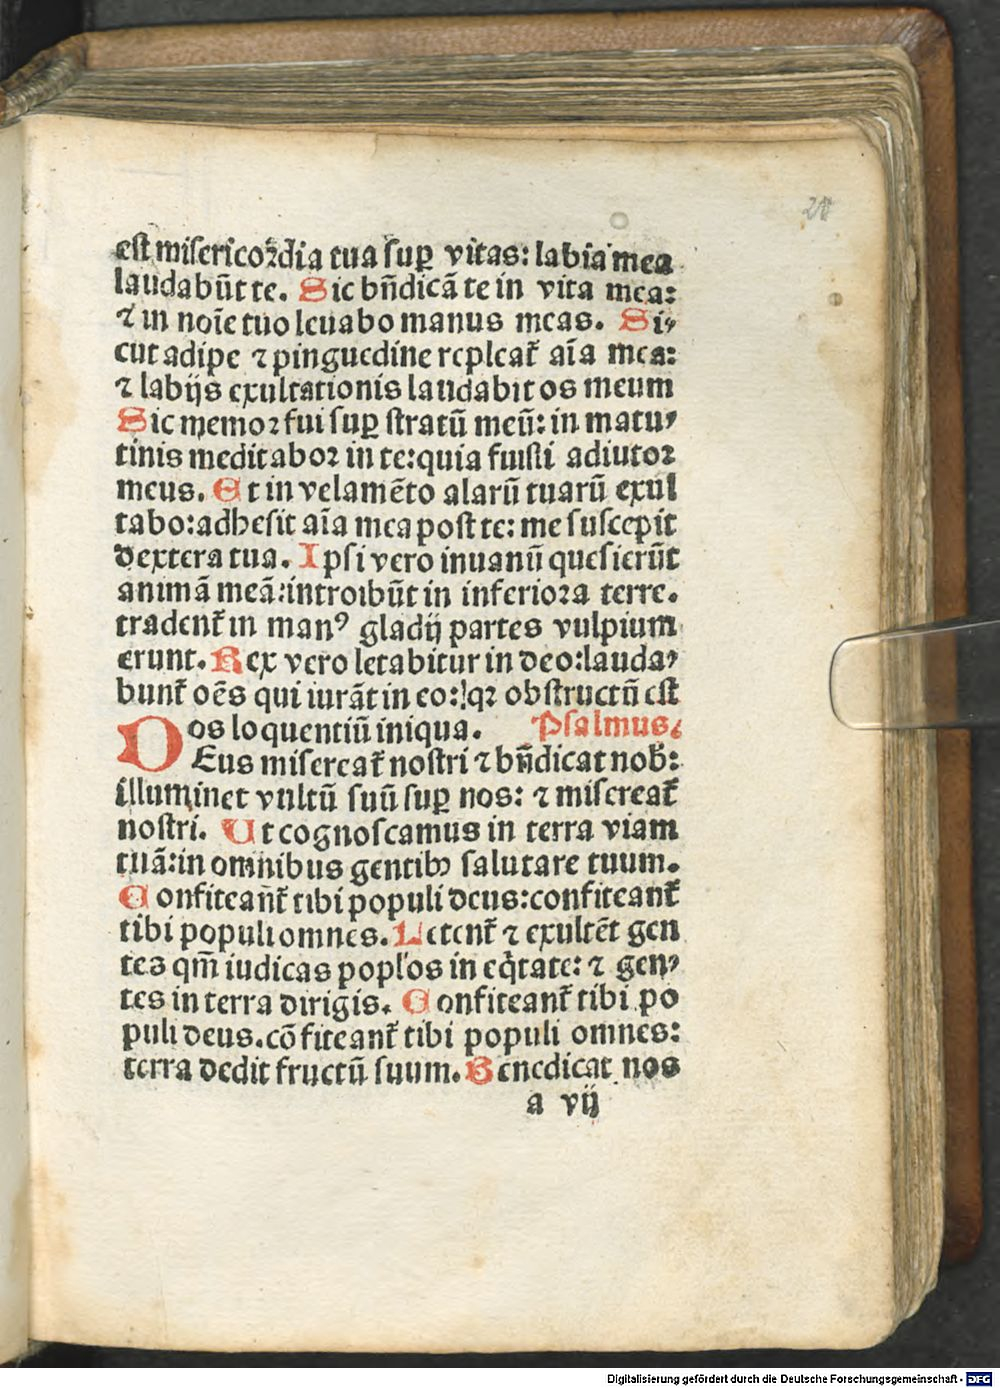 28
est misericordia tua suꝑ vitas: labia mea
laudabūt te. Sic bn̄dicā te in vita mea:
⁊ in noīe tuo leuabo manus meas. Si⸗
cut adipe ⁊ pinguedine repleat᷑ aīa mea:
⁊ labijs exultationis laudabit os meum
Sic memor fui suꝑ stratū meū: in matu⸗
tinis meditabor in te: quia fuisti adiutor
meus. Et in velamēto alarū tuarū exul
tabo: adhesit aīa mea post te: me suscepit
dextera tua. Ipsi vero inuanū quesierūt
animā meā: introibūt in inferiora terre.
tradent᷑ in manꝰ gladij partes vulpium
erunt. Rex vero letabitur in deo: lauda⸗
bunt᷑ oēs qui iurāt in eo: qꝛ obstructū est
os loquentiū iniqua. Psalmus.
DEus misereat᷑ nostri ⁊ bn̄dicat nob̄:
illuminet vultū suū suꝑ nos: ⁊ misereat᷑
nostri. Ut cognoscamus in terra viam
tuā: in omnibus gentibꝫ salutare tuum.
Confiteant᷑ tibi populi deus: confiteant᷑
tibi populi omnes. Letent᷑ ⁊ exultēt gen
tes qm̄ iudicas popl'os in eq̇tate: ⁊ gen⸗
tes in terra dirigis. Confiteant᷑ tibi po
puli deus. cōfiteant᷑ tibi populi omnes:
terra dedit fructū suum. Benedicat nos
a vij
Digitalisierung gefördert durch die Deutsche Forschungsgemeinschaft - DFG